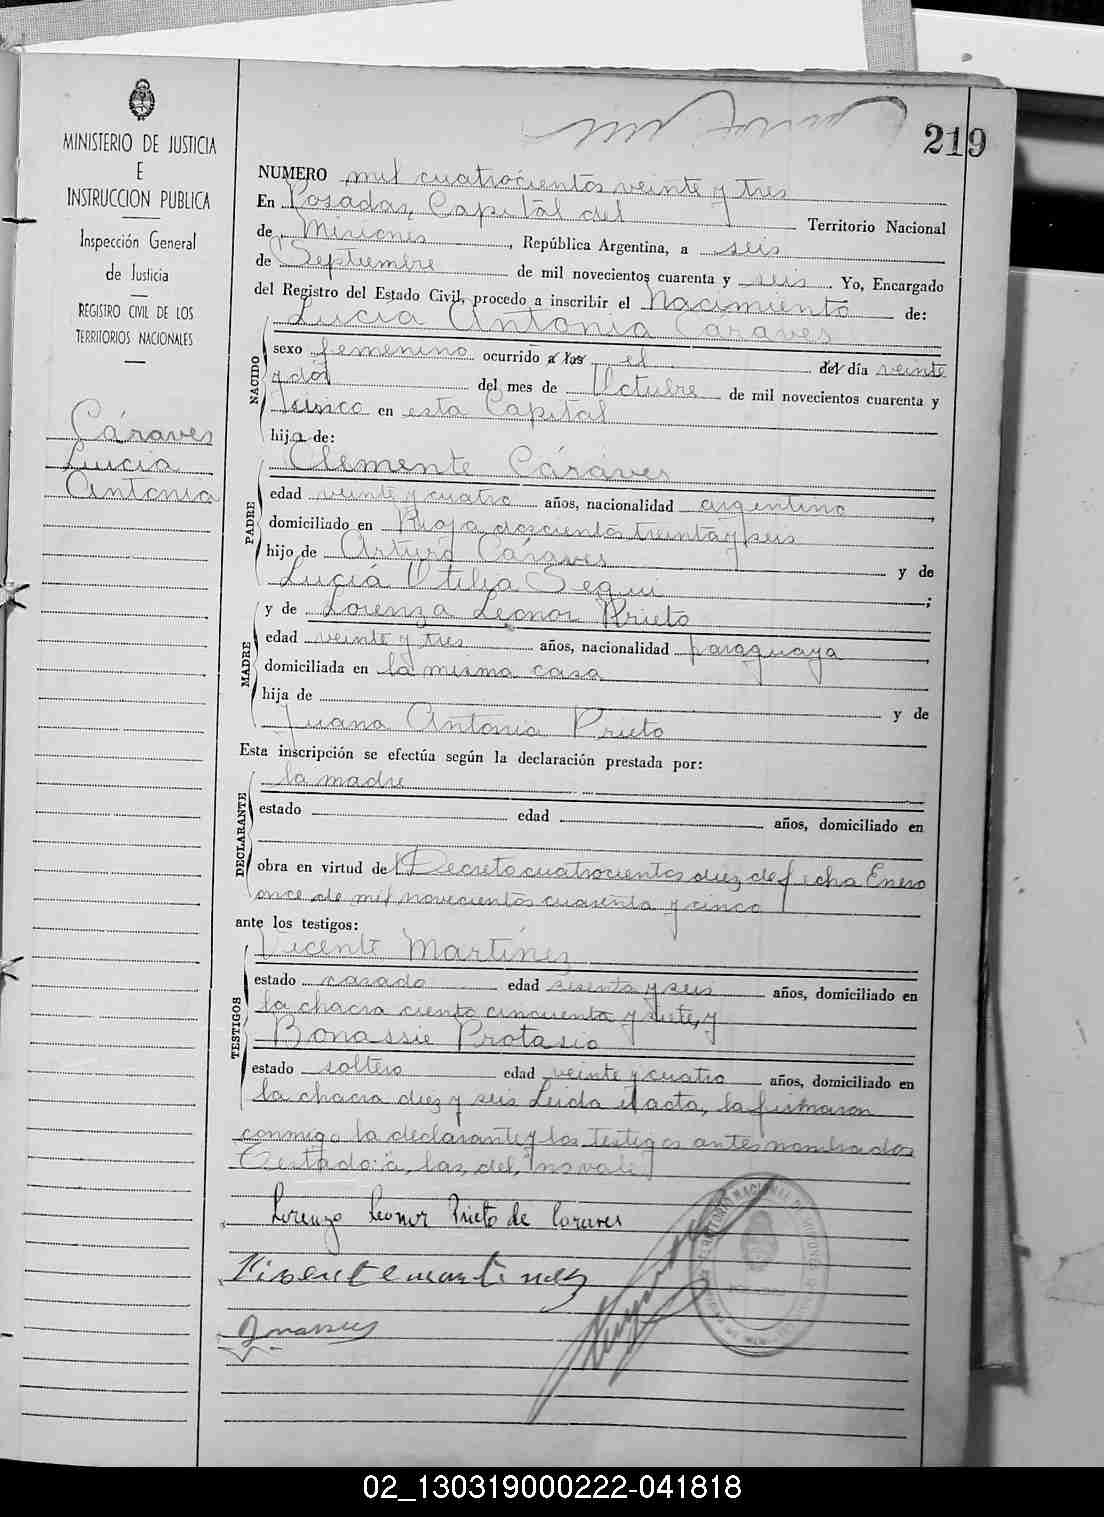 219
MINISTERIO DE JUSTICIA
E
INSTRUCCION PUBLICA
Inspección General
de Justicia
REGISTRO CIVIL DE LOS
TERRITORIOS NACIONALES
Cáraves
Lucia
Antonia
NUMERO mil cuatrocientos veinte y tres
En Posadas, Capital del Territorio Nacional
de Misiones, República Argentina, a seis
de Septiembre de mil novecientos cuarenta y seis Yo, Encargado
del Registro del Estado Civil, procedo a inscribir el Nacimiento de:
Lucia Antonia Caraves
NACIDO
sexo femenino ocurrido a las el del día veinte
y dós del mes de Octubre de mil novecientos cuarenta y
cinco en esta Capital
hija de:
PADRE
Clemente Cáraves
edad veinte y cuatro años, nacionalidad argentino,
domiciliado en Rioja doscientos treinta y seis
hijo de Arturo Cáraves y de
Lucia Otilia Segui;
MADRE
y de Lorenza Leonor Prieto
edad veinte y tres años, nacionalidad paraguaya,
domiciliada en la misma casa
hija de y de
Juana Antonia Prieto
Esta inscripción se efectúa según la declaración prestada por:
DECLARANTE
la madre
estado edad años, domiciliado en
obra en virtud del Decreto cuatrocientos diez de fecha Enero
once de mil novecientos cuarenta y cinco
ante los testigos:
TESTIGOS
Vicente Martínez
estado casado edad sesenta y seis años, domiciliado en
la chacra ciento cincuenta y siete, y
Bonassie Protasio
estado soltero edad veinte y cuatro años, domiciliado en
la chacra diez y seis Leida el acta, la firmaron
conmigo la declarante y los testigos antes nombrados
Testado: a, las, del, no vale
Lorenza Leonor Prieto de Caraves
Vicente martinez
02_130319000222-041818